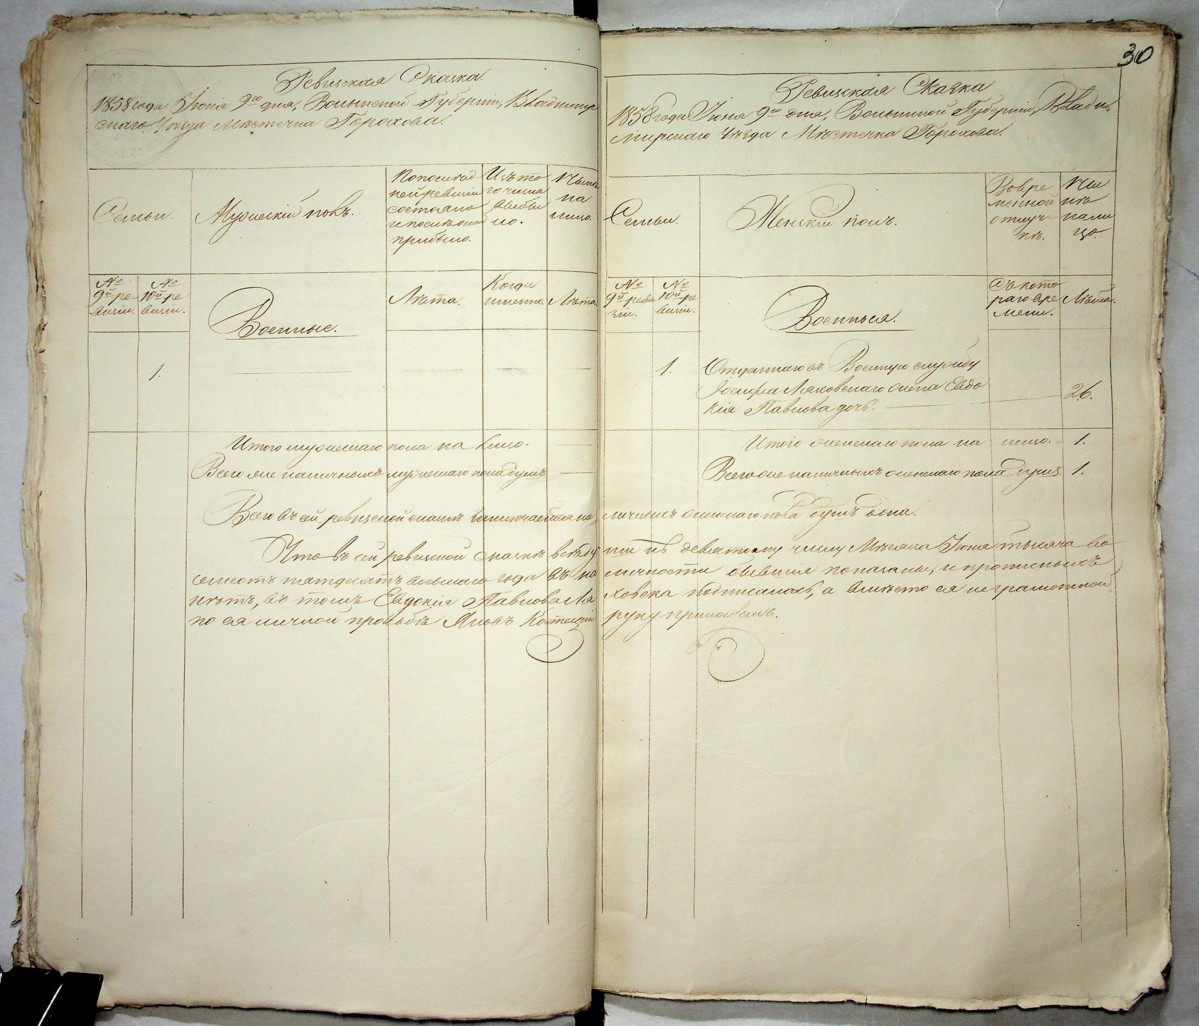 Ревизская Сказка
1858 года Іюня 9го дня, Волынской Губерніи, Владимир-
скаго Уѣзда Мѣстечка Горохова.
Семьи.
Мужескій полъ.
По послѣд
ней ревизіи
состояло
и послѣ оной
прибыло.
Изъ то
го числа
выбы
ло.
Нынѣ
на
лицо.
№
9й ре-
визіи.
№
10й ре
визіи.
Военные.
Лѣта.
Когда
именно.
Лѣта
1.
Итого мужескаго пола на лицо.
Всего же наличныхъ мужескаго пола душъ
30
Ревизская Сказка
1858 года Іюня 9го дня, Волынской Губерніи, Влади-
мирскаго Уѣзда Мѣстечка Горохова.
Семьи.
Женскій полъ.
Во вре
менной
отлуч-
кѣ.
Ны
нѣ
на ли
цо.
№
9й реви
зіи.
№
10й ре
визіи.
Военныя.
Съ кото
раго вре
мени.
Лѣта.
1.
Отданнаго въ Военную службу
Іосифа Ляховскаго жена Евдо
кія Павлова дочь.
26.
Итого женскаго пола на лицо. 1.
Всего же наличныхъ женскаго пола душъ 1.
Всего въ сей ревизской сказкѣ заключается на личныхъ женскаго пола душъ одна.
Что въ сей ревизской сказкѣ всѣ ду ши къ девятому числу Мѣсяца Іюня тысяча во-
семсотъ пятдесятъ восьмаго года въ на личности бывшія показаны, и прописныхъ
нѣтъ, въ томъ Евдокія Павлова Ля ховска подписалась, а вмѣсто ея неграмотной
по ея личной просьбѣ руку приложилъ.